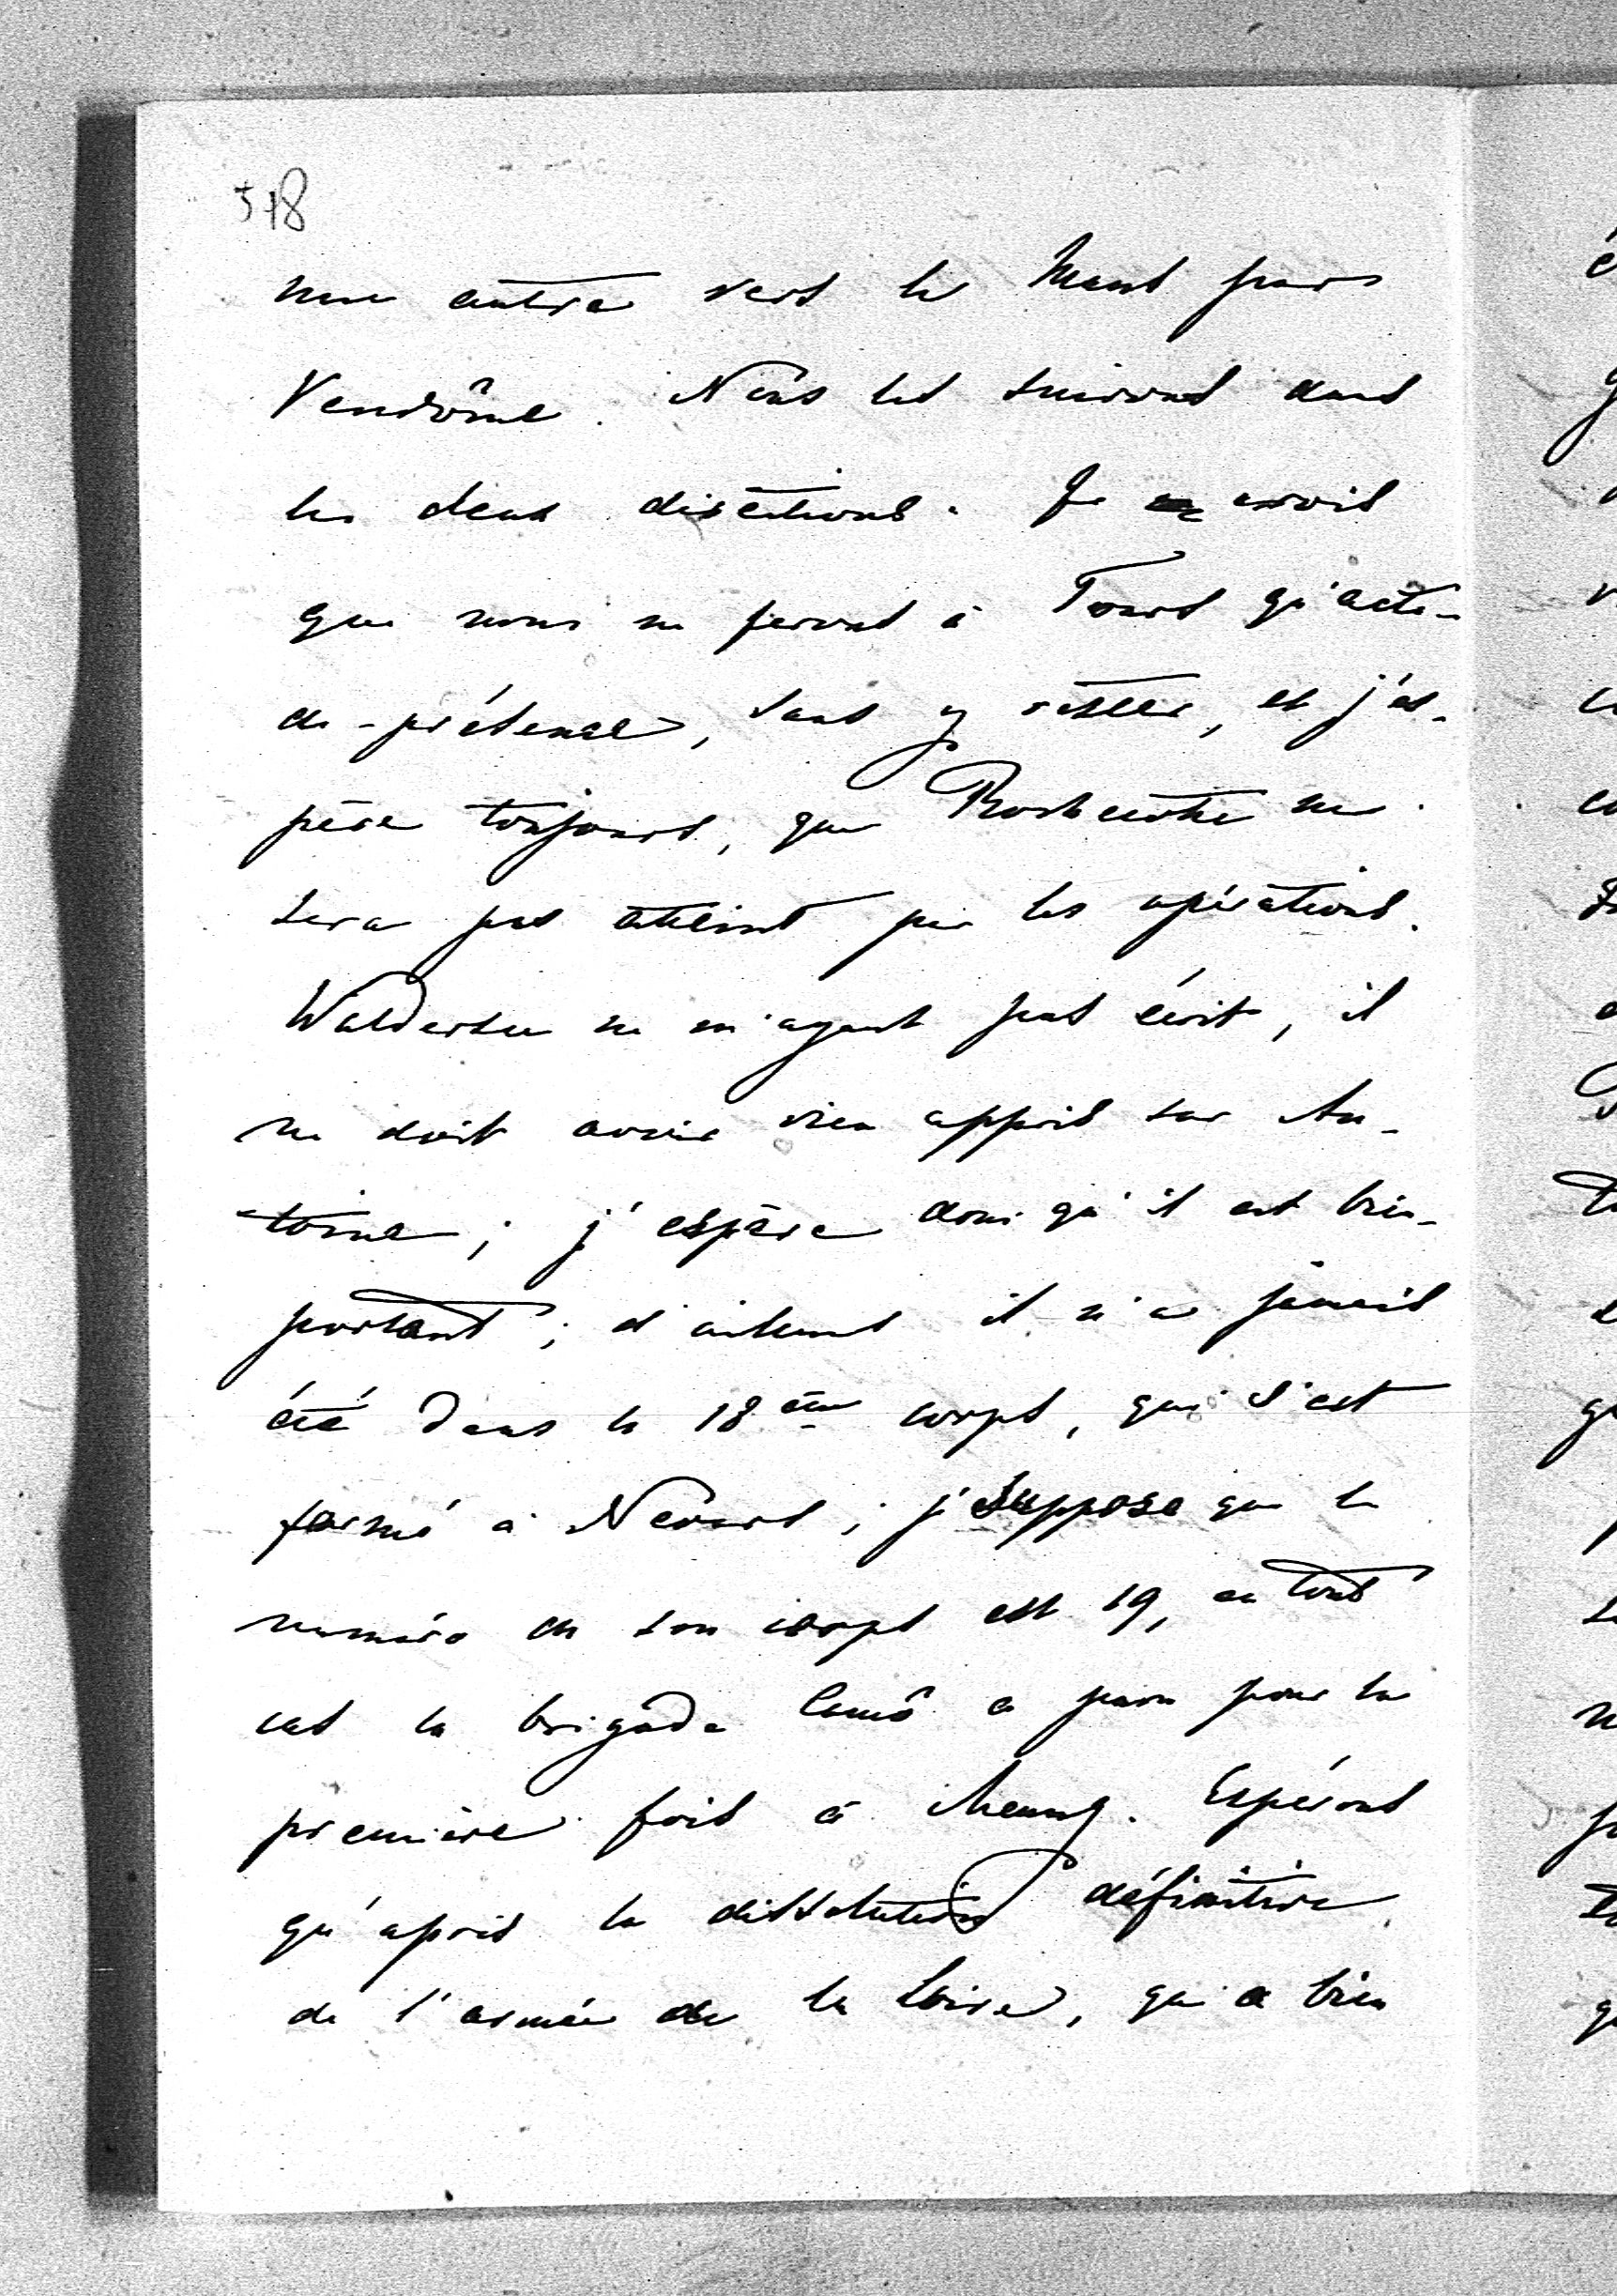 518
une autre vers le Mans par
Vendôme. Nous les suivons dans
les deux directions. Je crois
que nous ne ferons à Tours qu'acte-
de-présence, sans y rester, et j'es-
père toujours, que Rochecotte ne
sera pas atteint par les opérations.
Waldersee ne m'ayant pas écrit, il
ne doit avoir rien appris sur An-
toine; j'espère donc qu'il est bien-
portant; d'ailleurs il n'a jamais
été dans le 18ème corps, qui s'est
formé à Nevers; je suppose que le
numéro de son corps est 19, en tout
cas la brigade Camô a paru pour la
première fois à Meung. Espérons
qu'après la dissolution définitive
de l'armée de la Loire, qui a bien